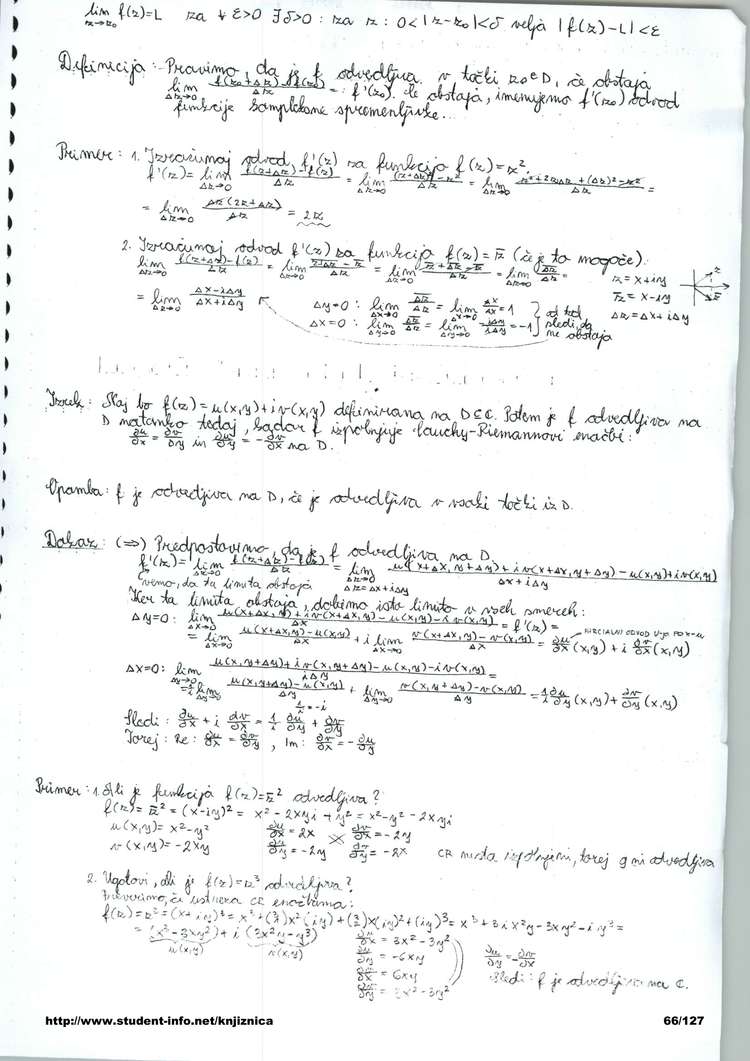 lim_{z→z0} f(z)=L za ∀ ε>0 ∃δ>0 : za z : 0<|z-z0|<δ velja |f(z)-L|<ε
Definicija: Pravimo, da je f odvedljiva v točki z0∈D, če obstaja
lim_{Δz→0} (f(z0+Δz)-f(z0))/Δz =: f'(z0). Če obstaja, imenujemo f'(z0) odvod
funkcije kompleksne spremenljivke...
Primer: 1. Izračunaj odvod f'(z) za funkcijo f(z)=z².
f'(z)= lim_{Δz→0} (f(z+Δz)-f(z))/Δz = lim_{Δz→0} ((z+Δz)²-z²)/Δz = lim_{Δz→0} (z²+2zΔz+(Δz)²-z²)/Δz =
= lim_{Δz→0} Δz(2z+Δz)/Δz = 2z
2. Izračunaj odvod f'(z) za funkcijo f(z)=z̅ (če je to mogoče).
lim_{Δz→0} (f(z+Δz)-f(z))/Δz = lim_{Δz→0} (z̅+̅Δ̅z̅ - z̅)/Δz = lim_{Δz→0} (z̅+Δ̅z̅-z̅)/Δz = lim_{Δz→0} Δ̅z̅/Δz = z=x+iy
z̅=x-iy
= lim_{Δz→0} (Δx-iΔy)/(Δx+iΔy) Δy=0: lim_{Δx→0} Δ̅z̅/Δz = lim_{Δx→0} Δx/Δx = 1 od tod Δz=Δx+iΔy
Δx=0: lim_{Δy→0} Δ̅z̅/Δz = lim_{Δy→0} -iΔy/iΔy = -1 sledi, da
ne obstaja
Izrek: Naj bo f(z)=u(x,y)+iv(x,y) definirana na D⊆C. Potem je f odvedljiva na
D natanko tedaj, kadar f izpolnjuje Cauchy-Riemannovi enačbi:
∂u/∂x = ∂v/∂y in ∂u/∂y = -∂v/∂x na D.
Opomba: f je odvedljiva na D, če je odvedljiva v vsaki točki iz D.
Dokaz: (⇒) Predpostavimo, da je f odvedljiva na D.
f'(z)= lim_{Δz→0} (f(z+Δz)-f(z))/Δz = lim_{Δz→0} (u(x+Δx,y+Δy)+iv(x+Δx,y+Δy)-u(x,y)+iv(x,y))/(Δx+iΔy)
vemo, da ta limita obstaja Δz=Δx+iΔy
Ker ta limita obstaja, dobimo isto limito v vseh smereh:
Δy=0: lim_{Δx→0} (u(x+Δx,y)+iv(x+Δx,y)-u(x,y)-iv(x,y))/Δx = f'(z) =
= lim_{Δx→0} (u(x+Δx,y)-u(x,y))/Δx + i lim_{Δx→0} (v(x+Δx,y)-v(x,y))/Δx = ∂u/∂x (x,y) + i ∂v/∂x (x,y)
PARCIALNI ODVOD
Δx=0: lim_{Δy→0} (u(x,y+Δy)+iv(x,y+Δy)-u(x,y)-iv(x,y))/iΔy =
= 1/i lim_{Δy→0} (u(x,y+Δy)-u(x,y))/Δy + lim_{Δy→0} (v(x,y+Δy)-v(x,y))/Δy = 1/i ∂u/∂y (x,y) + ∂v/∂y (x,y)
1/i = -i
Sledi: ∂u/∂x + i ∂v/∂x = 1/i ∂u/∂y + ∂v/∂y
Torej: Re: ∂u/∂x = ∂v/∂y, Im: ∂v/∂x = -∂u/∂y
Primer: 1. Ali je funkcija f(z)=z̅² odvedljiva?
f(z)= z̅² = (x-iy)² = x² - 2xyi + y² = x²-y²-2xyi
u(x,y)= x²-y² ∂u/∂x = 2x ∂v/∂x = -2y
v(x,y)= -2xy ∂u/∂y = -2y ∂v/∂y = -2x CR nista izpolnjeni, torej g ni odvedljiva
2. Ugotovi, ali je f(z)=z³ odvedljiva?
Preverimo, če ustreza CR enačbama:
f(z)=z³=(x+iy)³= x³+(3/1)x²(iy)+(3/2)x(iy)²+(iy)³= x³+3ix²y-3xy²-iy³=
= (x³-3xy²)+i(3x²y-y³)
u(x,y) v(x,y)
∂u/∂x = 3x²-3y²
∂u/∂y = -6xy ∂u/∂y = -∂v/∂x
∂v/∂x = 6xy Sledi: f je odvedljiva na C.
∂v/∂y = 3x²-3y²
http://www.student-info.net/knjiznica 66/127